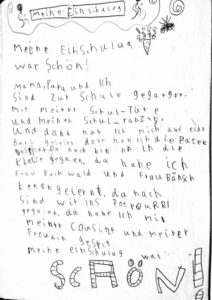 Meine Einschulug
Meine Einschulug
war Schön!
Mama, Papa und Ich
Sind zur Schule gegangen.
Mit meiner Schul-Tüte
und Meinen Schul-ranzen.
Und dann hab Ich mich auf eine
die Paten
Da nach bin ich in die
Klasse gegaen, da habe ich
Frau Buchwald und Frau Bänsch
Kennen gelernt, da nach
Sind wir ins POTPOURRI
gegaen, da habe Ich mit
meiner COUSine und meiner
Freundin
Meine einschulug war
SCHÖN!